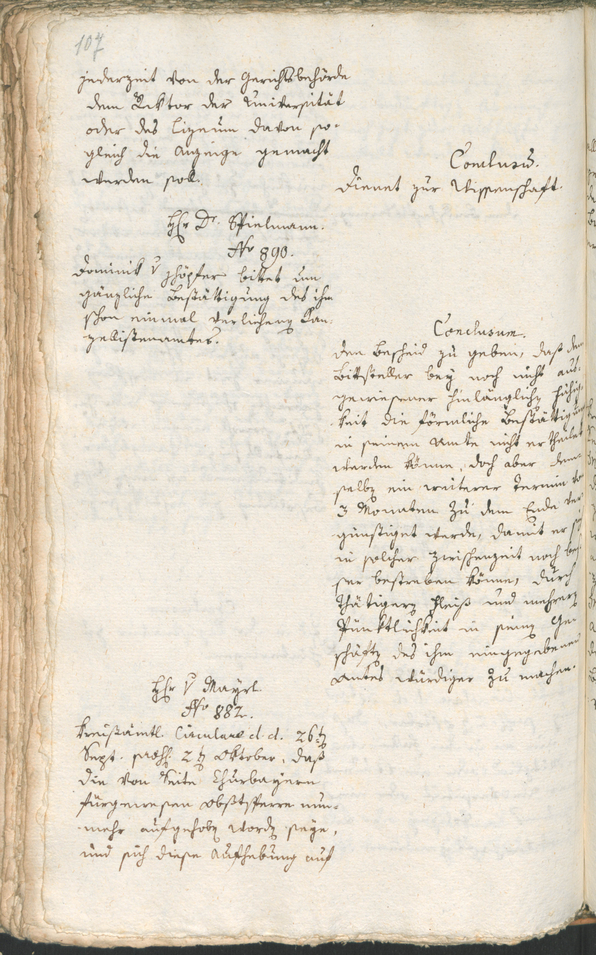 107
jederzeit von der Gerichtsbehörde
dem Rektor der Universität
oder des Lizeum davon so-
gleich die Anzeige gemacht
werden soll.
Conclusum.
Dienet zur Wissenschaft.
Hr. Dr. Spielmann.
No 890.
Dominik v bittet um
gänzliche Bestättigung des ihm
schon einmal verliehenen Kan-
zellistenamtes.
Conclusum.
den Bescheid zu geben, daß dem
Bittsteller bey noch nicht aus-
gewiesener hinlänglichen Fähig-
keit die förmliche Bestättigung
in seinem Amte nicht ertheilet
werden könne, doch aber dem-
selben ein weiterer Termin von
3 Monaten zu dem Ende ver-
günstiget werde, damit er sich
in solcher Zwischenzeit noch bes-
ser bestreben könne, durch
thätigern Fleiß und mehrere
Pünktlichkeit in seinen Ge-
schäften des ihm eingegebenen
Amtes würdiger zu machen.
Hr. v Mayrl
No 882.
Kreisämtl. Circulare d. d. 26ten
Sept. 2ten Oktober, daß
die von Seite Churbayern
fürgewesene Obstsperre nun-
mehr aufgehoben worden seye,
und sich diese Aufhebung auf